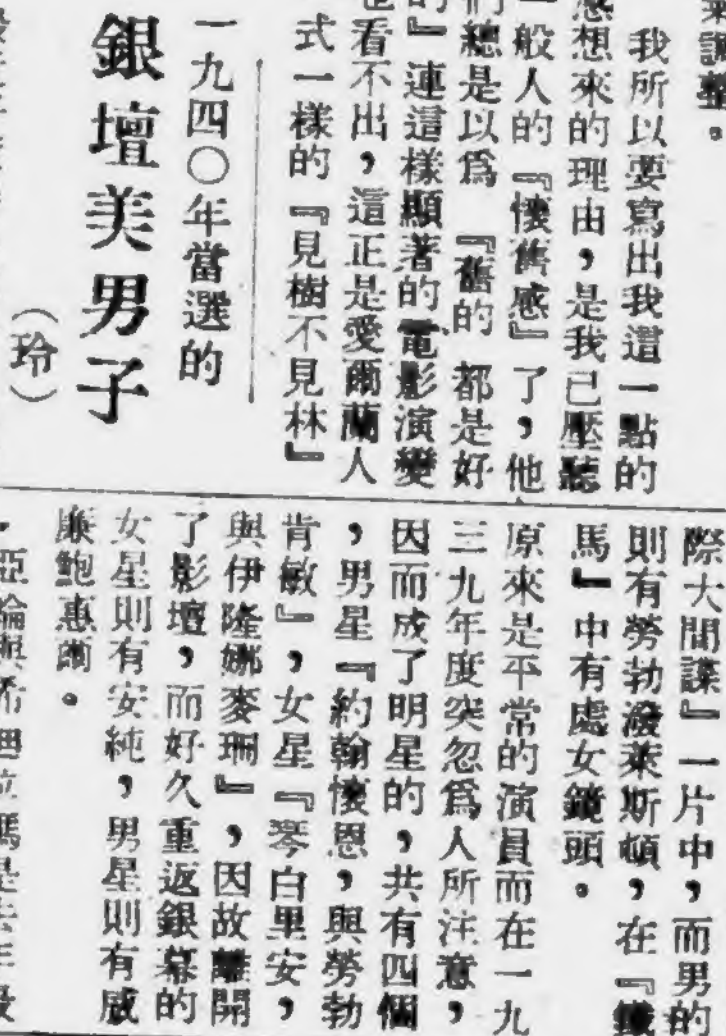 調整。
我所以要寫出我這一點的
感想來的理由，是我已壓聽
一般人的『懷舊感』了，他
們總是以爲『舊的 都是好
的』連這樣顯著的電影演變
也看不出，這正是愛爾蘭人
式一樣的『見樹不見林』
一九四〇年當選的
銀壇美男子
（玲）
際大間諜』一片中，而男的
則有勞勃潑萊斯頓，在『
馬』中有處女鏡頭。
原來是平常的演員而在一九
三九年度突忽爲人所注意，
因而成了明星的，共有四個
，男星『約翰懷恩，與勞勃
肯敏』，女星『琴白里安，
與伊隆娜麥珊』，因故離開
了影壇，而好久重返銀幕的
女星則有安純，男星則有威
廉鮑惠。